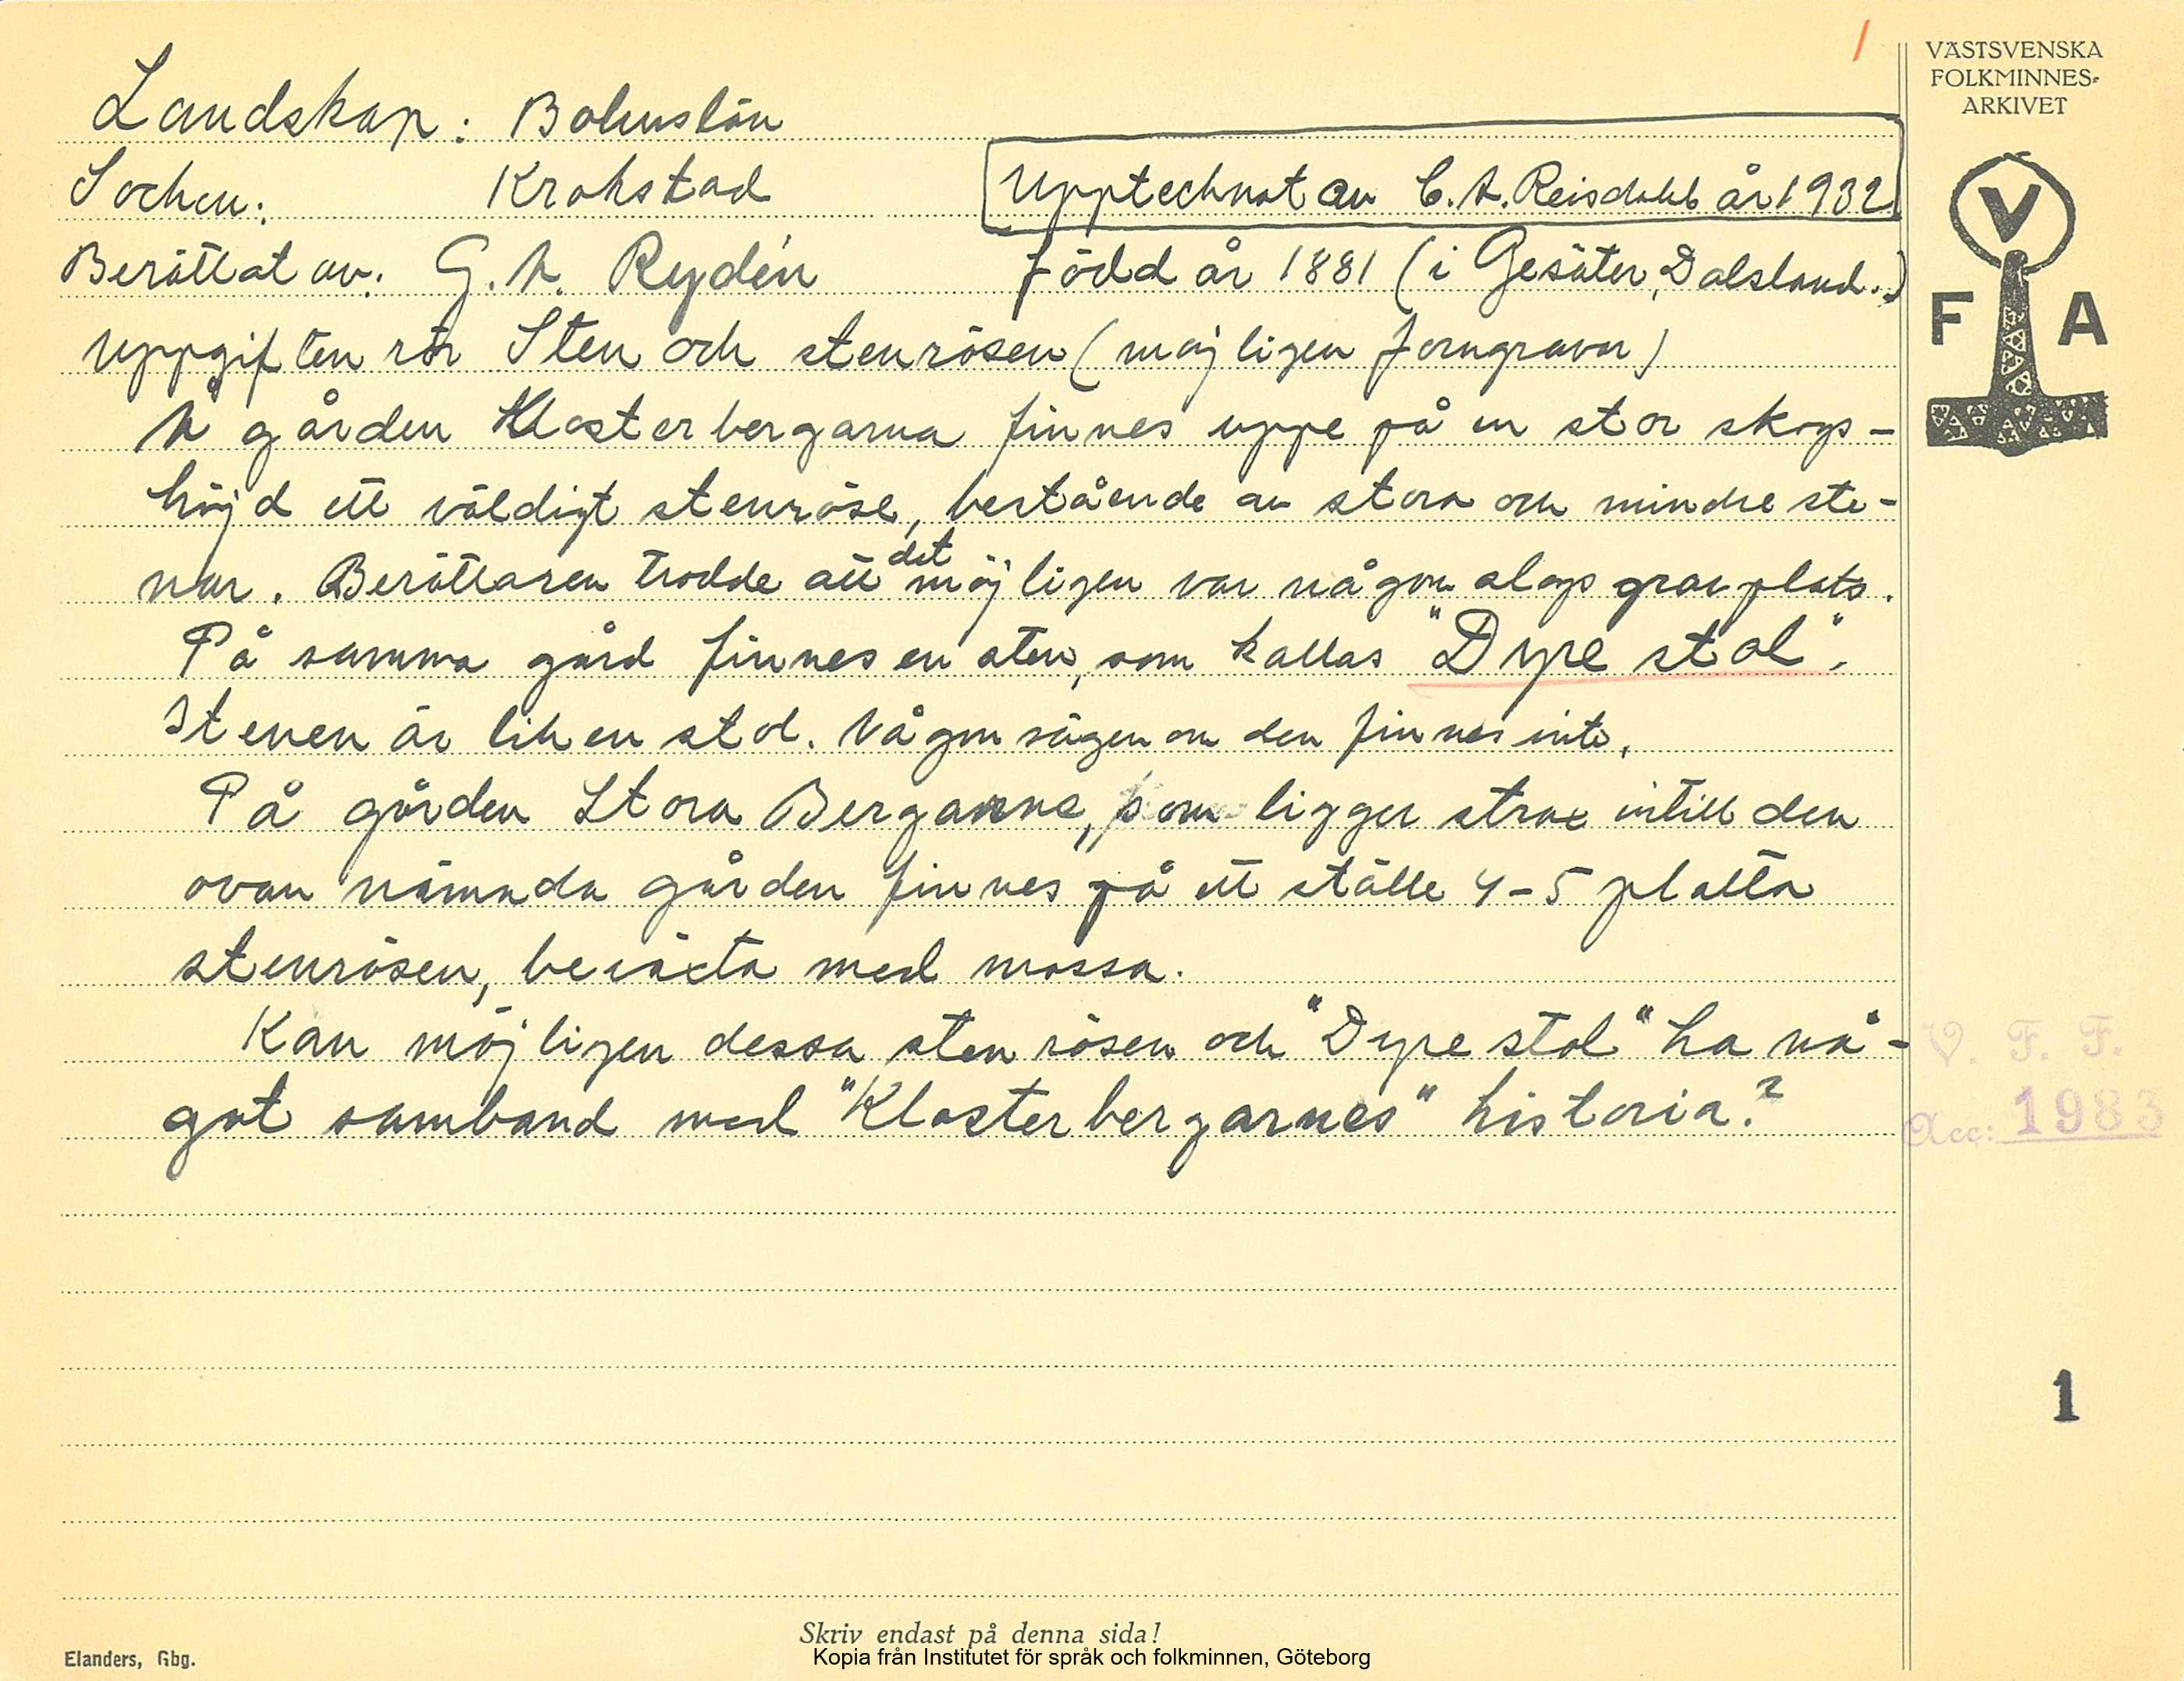 1
VÄSTSVENSKA
FOLKMINNES-
ARKIVET
V
F A
Landskap: Bohuslän
Socken: Krokstad
Upptecknat av C. A. Reisdahl år 1932
Berättat av: G. A. Rydén född år 1881 (i Gesäter, Dalsland.)
Uppgiften rör Sten och stenrösen (möjligen forngravar)
Å gården Klosterbergarna finnes uppe på en stor skogs-
höjd ett väldigt stenröse, bestående av stora och mindre ste-
nar. Berättaren trodde att det möjligen var någon slags gravplats.
På samma gård finnes en sten, som kallas "Dype stol".
Stenen är lik en stol. Någon sägen om den finnes inte.
På gården Stora Bergarne, som ligger strax intill den
ovan nämnda gården finnes på ett ställe 4-5 platta
stenrösen, beväxta med mossa.
Kan möjligen dessa stenrösen och "Dype stol" ha nå-
got samband med "Klosterbergarnes" historia?
V. F. F.
Acc: 1983
1
Skriv endast på denna sida!
Elanders, Gbg.
Kopia från Institutet för språk och folkminnen, Göteborg